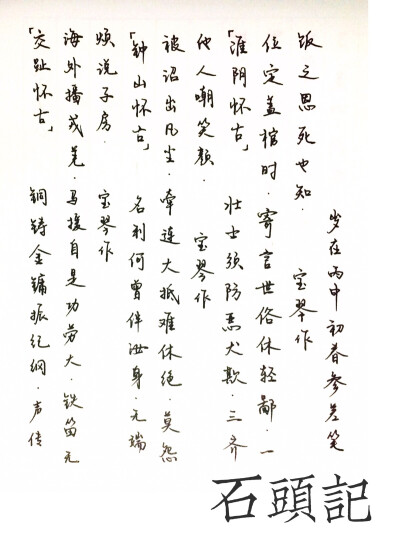 「交趾怀古」 铜铸金镛振纪纲.声传
海外播戎羌.马援自是功劳大.铁笛无
烦说子房. 宝琴作
「钟山怀古」 名利何曾伴汝身.无端
被诏出凡尘.牵连大抵难休绝.莫怨
他人嘲笑频. 宝琴作
「淮阴怀古」 壮士须防恶犬欺.三齐
位定盖棺时.寄言世俗休轻鄙.一
饭之恩死也知. 宝琴作
岁在丙申初春参差笔
石頭記